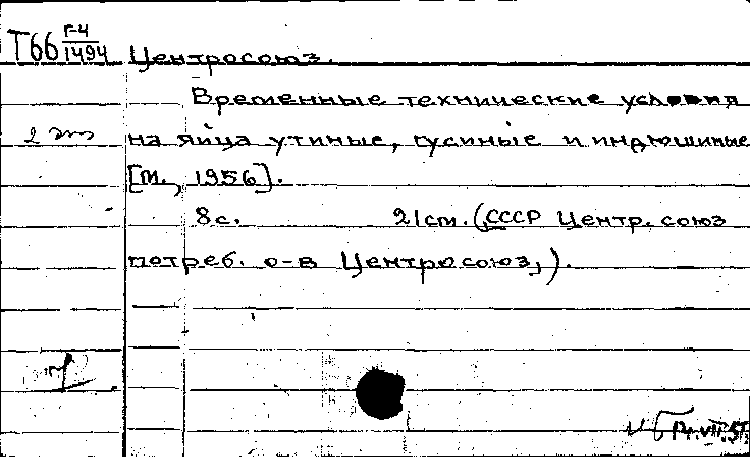 Т66 Г-4/1494 Центросоюз.
Временные технические условия
2 экз на яйца утиные, гусиные и индюшиные
[М., 1956].
8с. 21см. (СССР Центр. союз
потреб. о-в Центросоюз,).